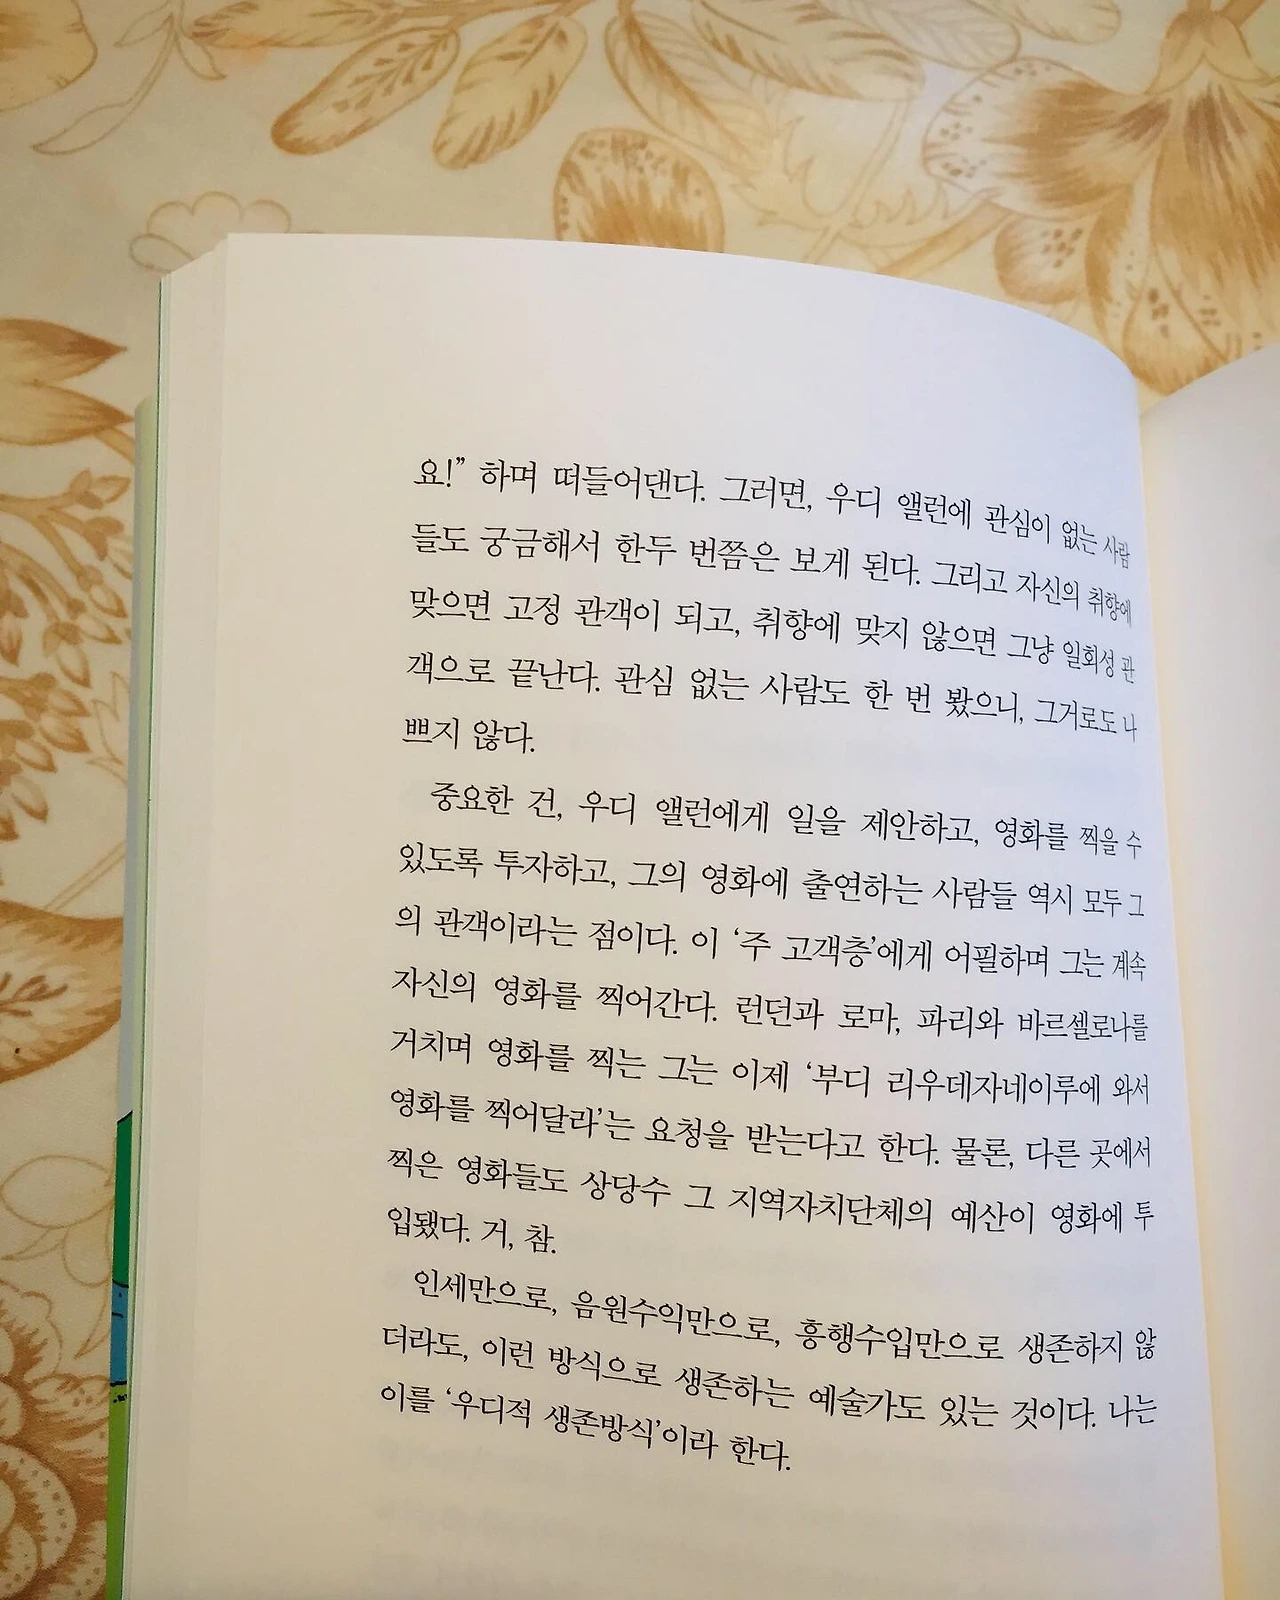 요!” 하며 떠들어댄다. 그러면, 우디 앨런에 관심이 없는 사람
들도 궁금해서 한두 번쯤은 보게 된다. 그리고 자신의 취향에
맞으면 고정 관객이 되고, 취향에 맞지 않으면 그냥 일회성 관
객으로 끝난다. 관심 없는 사람도 한 번 봤으니, 그거로도 나
쁘지 않다.
중요한 건, 우디 앨런에게 일을 제안하고, 영화를 찍을 수
있도록 투자하고, 그의 영화에 출연하는 사람들 역시 모두 그
의 관객이라는 점이다. 이 ‘주 고객층’에게 어필하며 그는 계속
자신의 영화를 찍어간다. 런던과 로마, 파리와 바르셀로나를
거치며 영화를 찍는 그는 이제 ‘부디 리우데자네이루에 와서
영화를 찍어달라’는 요청을 받는다고 한다. 물론, 다른 곳에서
찍은 영화들도 상당수 그 지역자치단체의 예산이 영화에 투
입됐다. 거, 참.
인세만으로, 음원수익만으로, 흥행수입만으로 생존하지 않
더라도, 이런 방식으로 생존하는 예술가도 있는 것이다. 나는
이를 ‘우디적 생존방식’이라 한다.